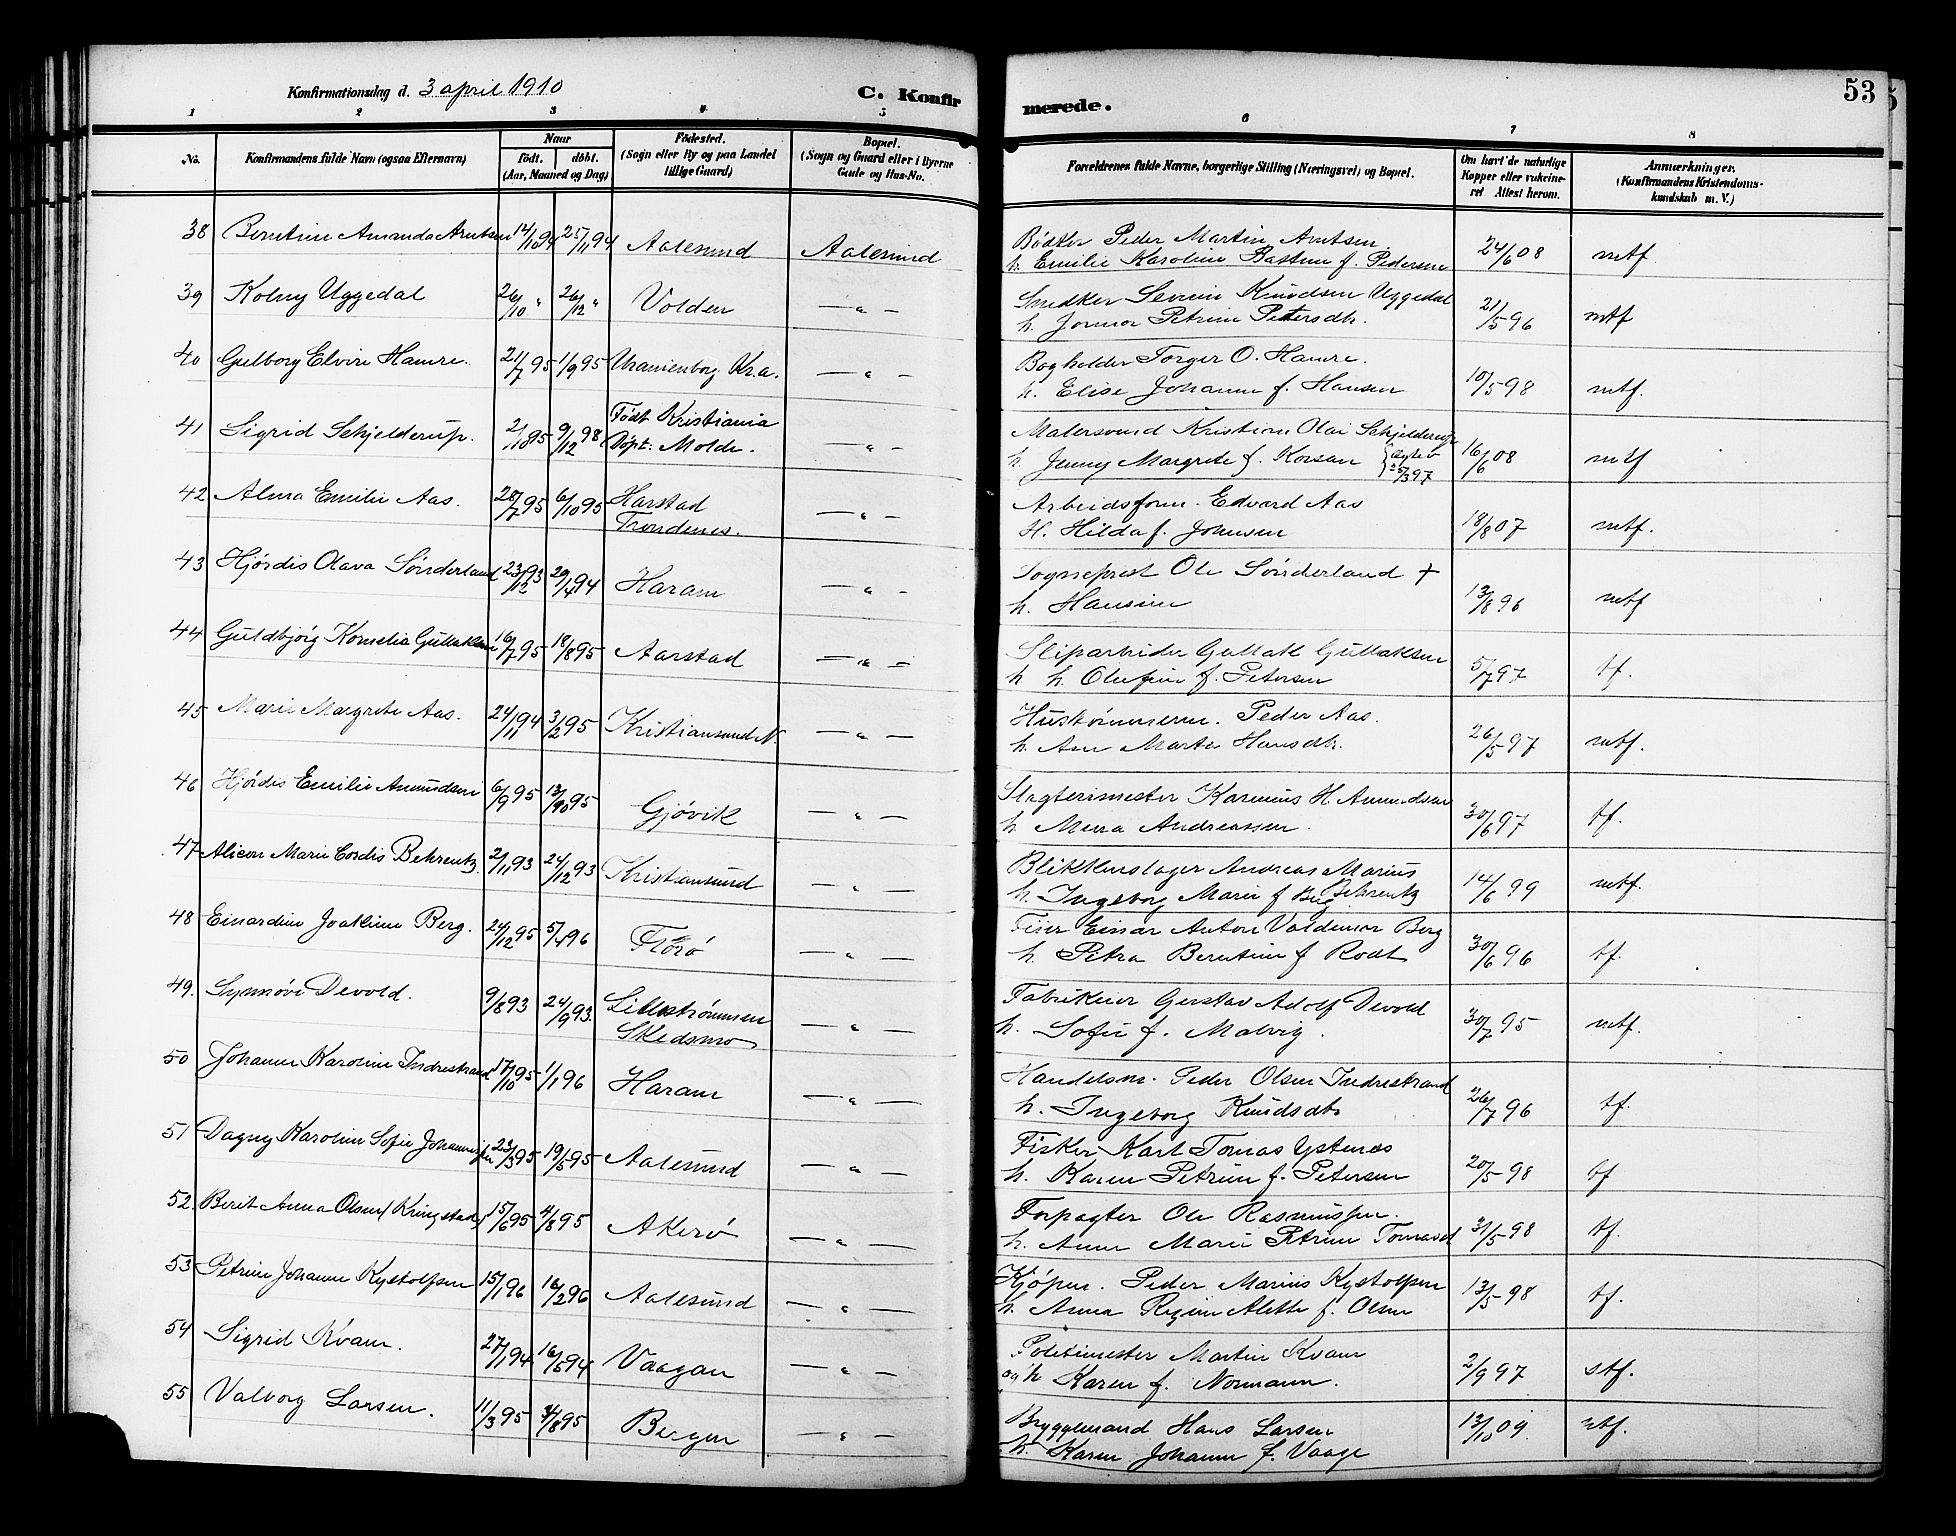 Konfirmationsdag d. 3 april 1910
C. Konfirmerede.
53
1 2 3 4 5 6 7 8
No.
Konfirmandens fulde Navn (ogsaa Efternavn)
Naar
født. døbt.
(Aar, Maaned og Dag)
Fødested.
(Sogn eller By og paa Landet
tillige Gaard)
Bopæl.
(Sogn og Gaard eller i Byerne
Gade og Hus-No.
Forældrenes fulde Navne, borgerlige Stilling (Næringsvei) og Bopæl.
Om havt de naturlige
Kopper eller vakcine-
ret Attest herom.
Anmærkninger.
(Konfirmandens Kristendoms-
kundskab m. V.)
38 Berntine Amanda Arntsen 14/10 94 25/11 94 Aalesund Aalesund
Bødker Peder Martin Arntsen
h. Emilie Karoline Bastine f. Pedersen 24/6 08 mtf
39 Kolny Uggedal 26/10 " 26/12 " Volden — " —
Snedker Severin Knudsen Uggedal
h. Jonnor Petrine Petersdtr. 21/5 96 mtf
40 Gulborg Elvire Hamre. 21/7 95 1/9 95 Uranienborg Kr.a. — " —
Bogholder Torger O. Hamre.
h. Elise Johanne f. Hansen 10/5 98 mtf.
41 Sigrid Schjelderup. 2/1895 9/12 98 Født Kristiania
Døpt. Molde. — " —
Malersvend Kristian Olai Schjelderup
h. Jenny Margrete f. Korsan 25/3 97 16/6 08 mtf
42 Alma Emilie Aas. 28/7 95 6/10 95 Harstad
Trondenes. — " —
Arbeidsform. Edvard Aas
H. Hilda f. Johnsen 18/8 07 mtf.
43 Hjørdis Olava Sønderland 23/12 93 29/4 94 Haram — " —
Sogneprest Ole Sønderland +
h. Hansine 13/8 96 mtf
44 Guldbjørg Kornelia Gullaksen 16/7 95 18/8 95 Aarstad — " —
Sliparbeider Gullak Gullaksen
h h. Olufine f. Petersen 5/7 97 tf.
45 Marie Margrete Aas. 24/11 94 3/2 95 Kristiansund N. — " —
Hustømmerm. Peder Aas.
h. Ane Marta Hansdtr. 26/5 97 mtf.
46 Hjørdis Emilie Amundsen 6/9 95 13/10 95 Gjøvik — " —
Slagterimester Karenius H. Amundsen
h. Mena Andreassen. 30/6 97 tf.
47 Alicon Marie Cordis Behrentz. 2/11 93 24/12 93 Kristiansund — " —
Blikkenslager Andreas Marius Behrentz
h. Ingeborg Marie f Berg 14/6 99 mtf.
48 Einardine Joakime Berg. 24/12 95 5/4 96 Florø — " —
Fisker Einar Anton Valdemar Berg
h. Petra Berntine f Rodt 30/6 96 tf.
49. Synnøve Devold. 9/8 93 24/9 93. Lillestrømmen
Skedsmo — " —
Fabrikeier Gustav Adolf Devold
h. Sofie f. Malvig. 30/7 95 mtf.
50 Johanne Karoline Indrestrand 17/10 95 1/1 96 Haram — " —
Handelsm. Peder Olsen Indrestrand
h. Ingeborg Knudsdtr 26/7 96 tf.
51 Dagny Karoline Sofie Johannessen 23/3 95 19/5 95 Aalesund — " —
Fisker Karl Tomas Ystenes
h. Karen Petrine f. Petersen 20/5 98 tf
52. Berit Anna Olsen (Kringstad) 15/6 95 4/8 95 Akerø — " —
Forpagter Ole Rasmussen.
h. Anne Marie Petrine Tomasd 31/5 98 tf.
53 Petrine Johanne Rystolfsen 15/1 96 16/2 96 Aalesund — " —
Kjøpm. Peder Marius Rystolfsen
h. Anna Regine Alette f. Olsen 13/5 98 tf.
54 Sigrid Kvam. 27/1 94 16/5 94 Vaagan — " —
Politimester Martin Kvam
og h Karen f. Normann. 2/9 97 stf.
55 Valborg Larsen. 11/3 95 4/8 95 Bergen — " —
Bryggemand Hans Larsen
h. Karen Johanne f. Vaage 13/10 09. mtf.